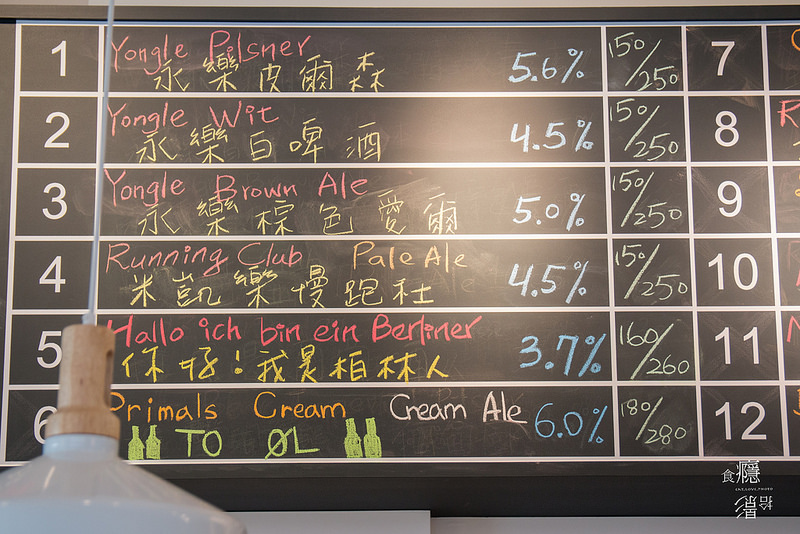 1 Yongle Pilsner 5.6% 150/250 7
永樂皮爾森
2 Yongle Wit 4.5% 150/250 8
永樂白啤酒
3 Yongle Brown Ale 5.0% 150/250 9
永樂棕色愛爾
4 Running Club Pale Ale 4.5% 150/250 10
米凱樂慢跑社
5 Hallo ich bin ein Berliner 3.7% 160/260 11
你好!我是柏林人
6 Primals Cream Cream Ale 6.0% 180/280 12
TO ØL
食癮
拾影